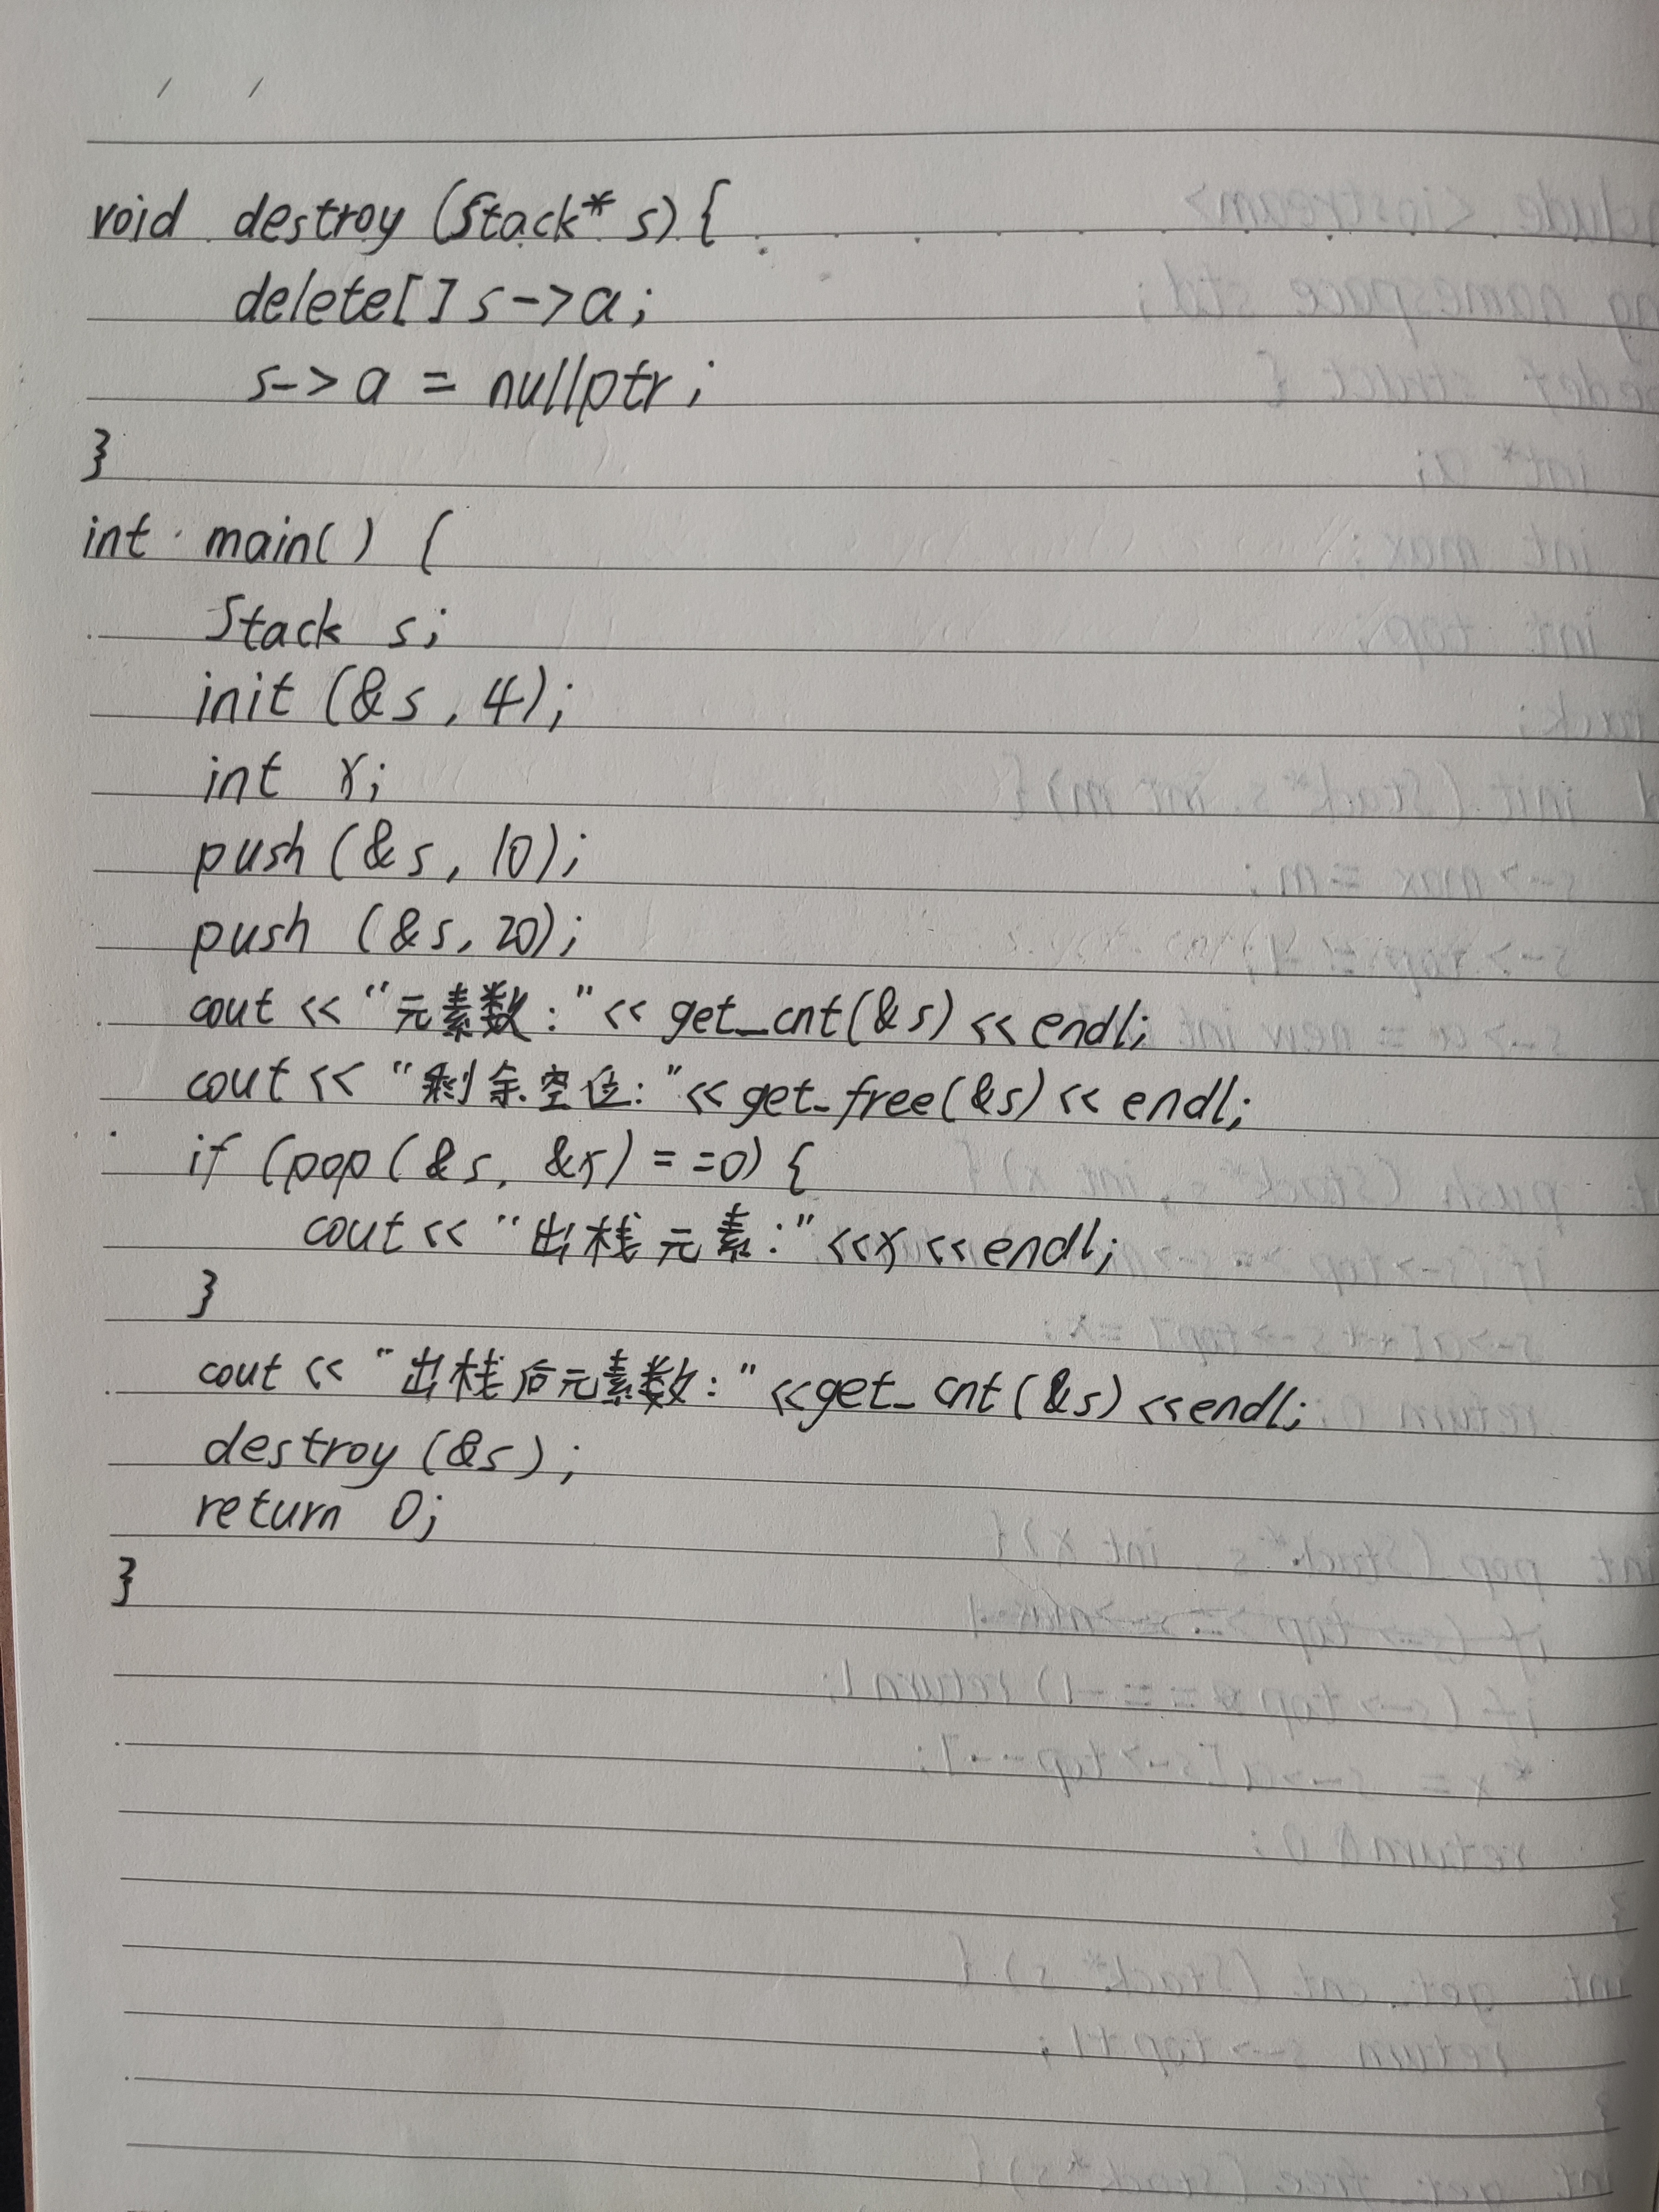 void destroy (Stack* s) {
delete[] s->a;
s->a = nullptr;
}
int main() {
Stack s;
init (&s, 4);
int x;
push (&s, 10);
push (&s, 20);
cout << "元素数:" << get_cnt(&s) << endl;
cout << "剩余空位:" << get_free(&s) << endl;
if (pop(&s, &x) == 0) {
cout << "出栈元素:" << x << endl;
}
cout << "出栈后元素数:" << get_cnt(&s) << endl;
destroy (&s);
return 0;
}